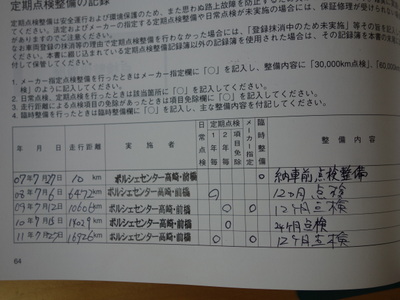 定期点検整備の記録
定期点検整備は安全運行および環境保護のため、また思わぬ路上故障を防止するため
てください。法およびメーカーの指定する定期点検整備や日常点検が未実施の場合には、保証修理が受けられ
がありますのでご注意ください。
なお車両登録の抹消等の理由で定期点検整備を行わなかった場合には、「登録抹消中のため未実施」等その旨を記
てください。本書に綴じ込まれている定期点検整備記録簿以外の記録簿を使用された場合は、その記録簿を本書
1. メーカー指定点検整備を行ったときはメーカー指定欄に「○」を記入し、整備内容に「30,000km点検」、「60,0
検」のように記入してください。
2. 日常点検、定期点検を行ったときは該当箇所に「○」を記入してください。
3. 走行距離による点検項目の免除があったときは項目免除欄に「○」を記入してください。
4. 臨時整備を行ったときは臨時整備欄に「○」を記入し、主な整備内容を付記してください。
年 月 日 走行距離 実施者 日常点検 定期点検 1年毎 2年毎 項目免除 メーカー指定 臨時整備 整備内容
07年7月27日 10 km ポルシェセンター高崎・前橋 ○ 納車前点検整備
08年7月6日 6472 km ポルシェセンター高崎・前橋 ○ 12ヵ月点検
09年7月12日 10606 km ポルシェセンター高崎・前橋 ○ ○ 12ヶ月点検
10年7月18日 14029 km ポルシェセンター高崎・前橋 ○ ○ 24ヶ月点検
11年7月27日 16926 km ポルシェセンター高崎・前橋 ○ ○ 12ヶ月点検
64